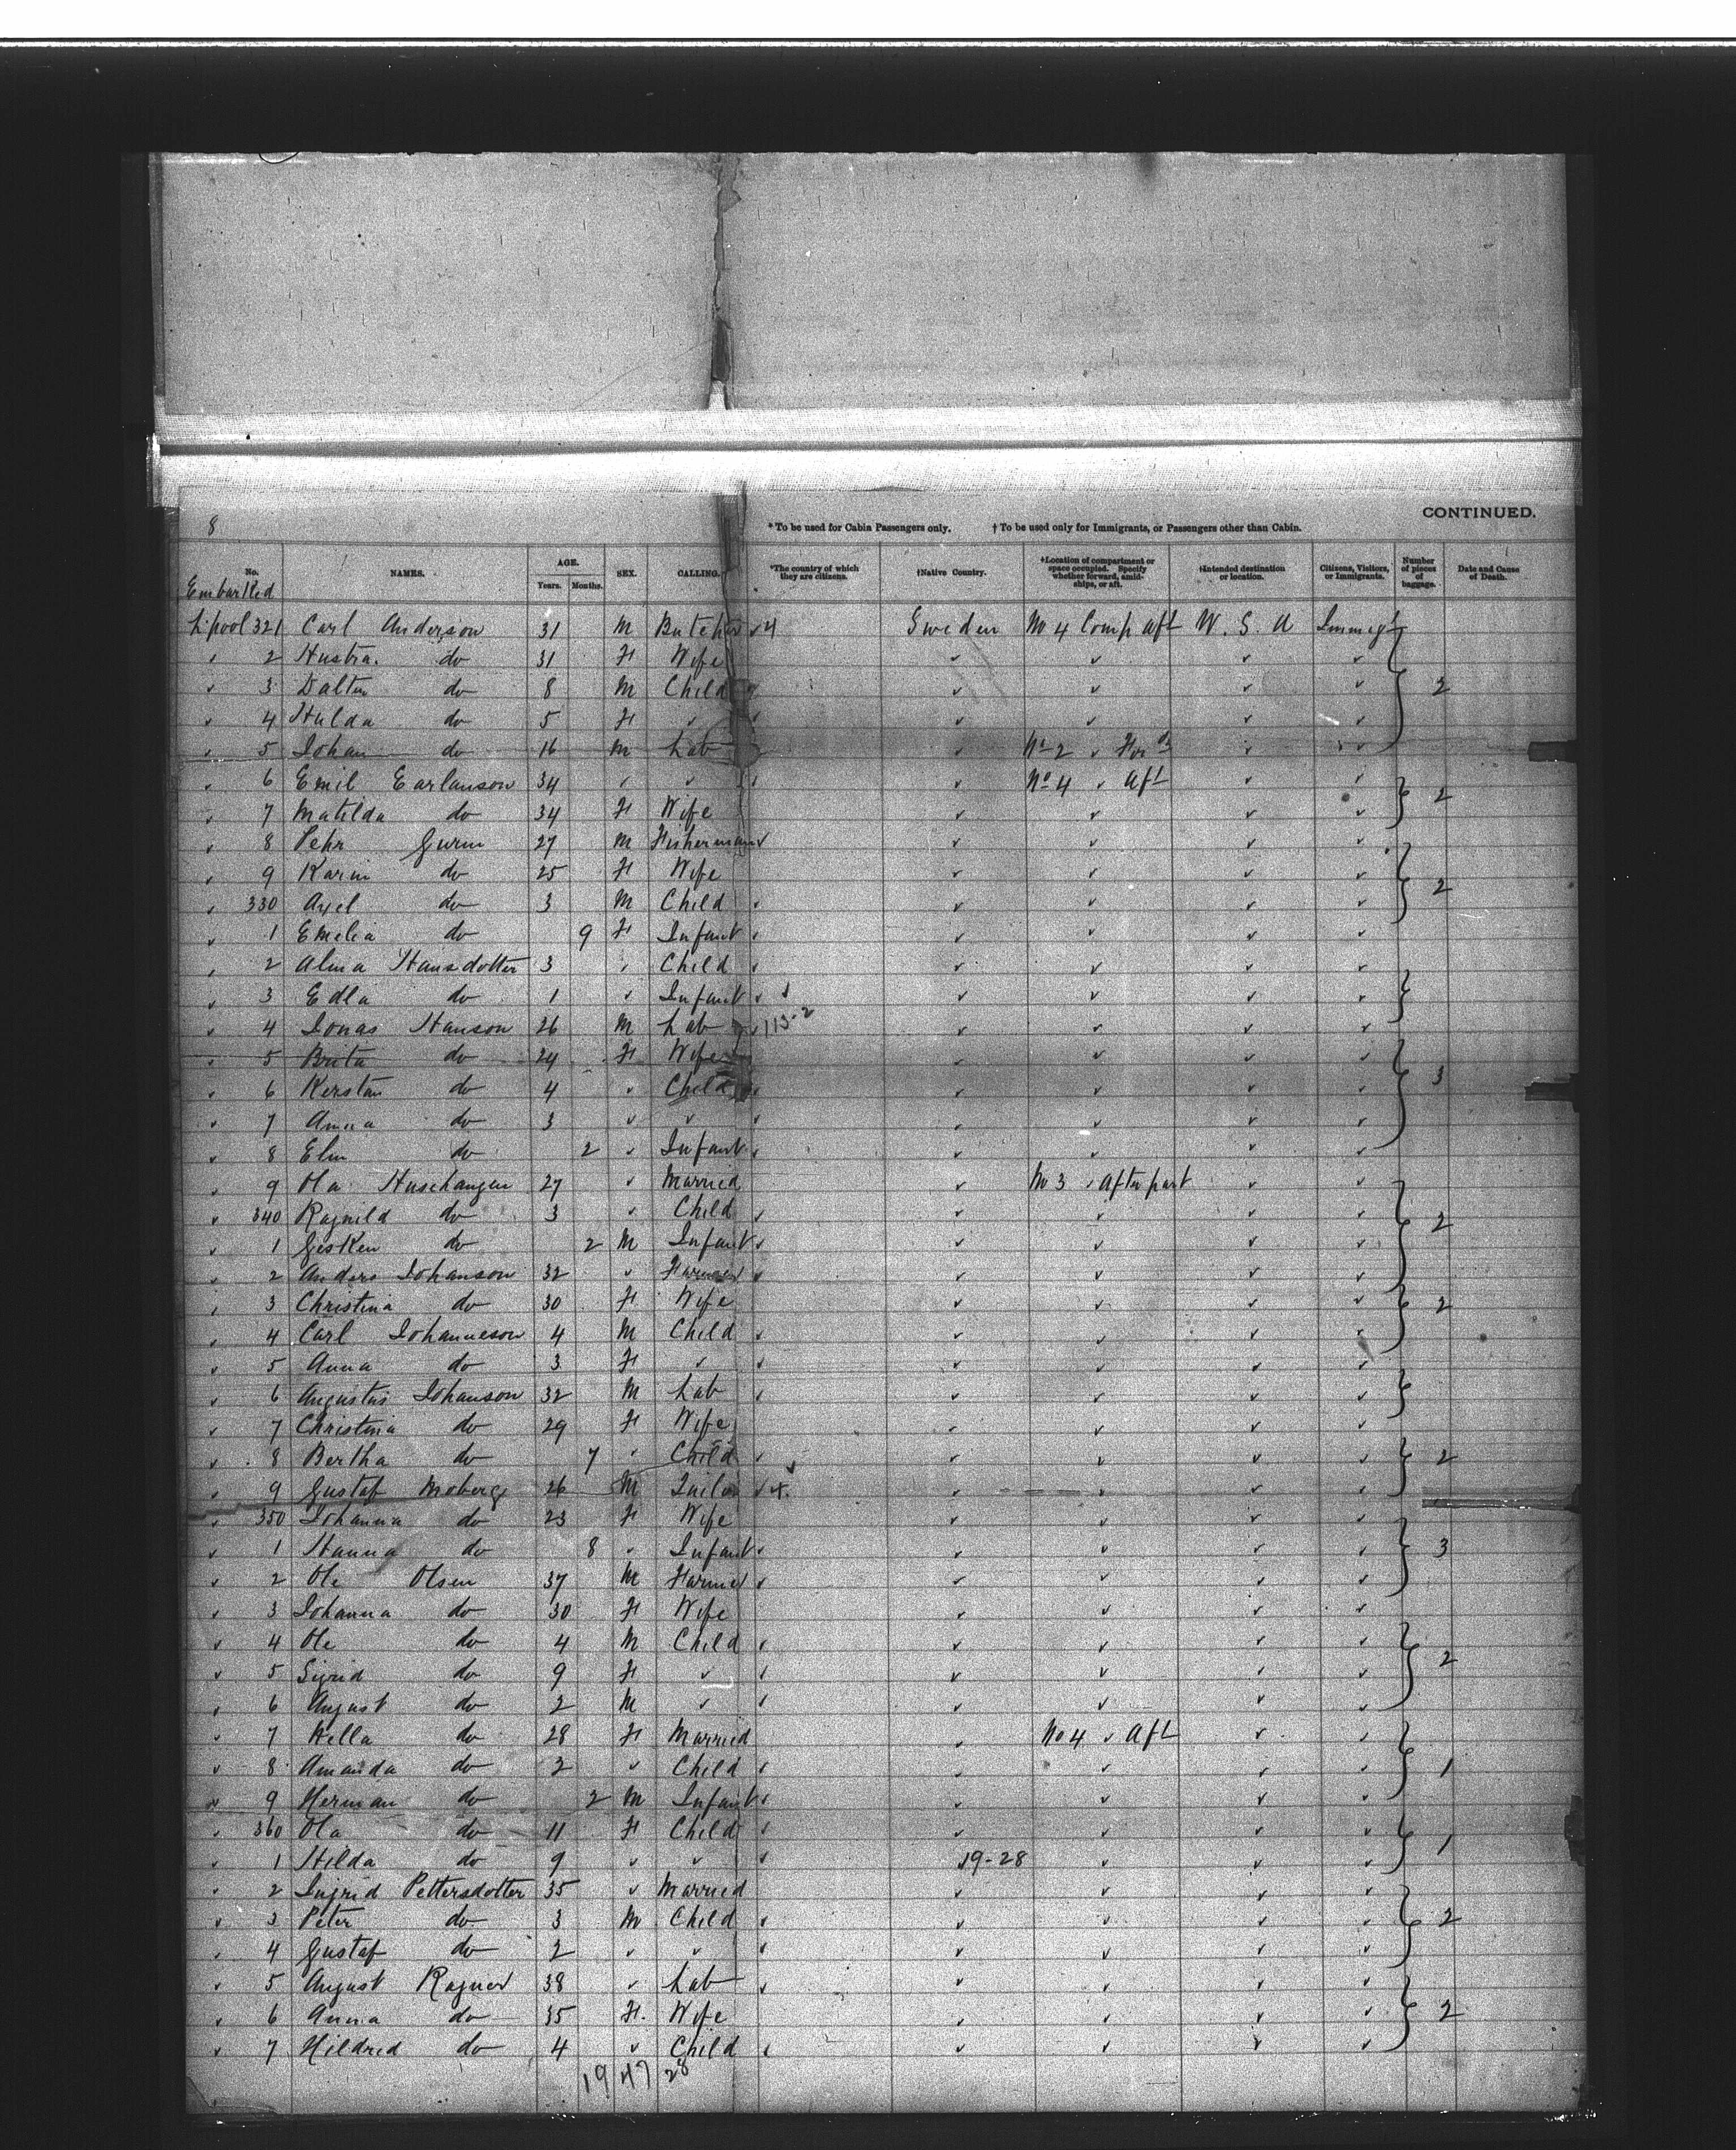 8
* To be used for Cabin Passengers only. † To be used only for Immigrants, or Passengers other than Cabin. CONTINUED.
No. NAMES. AGE. Years. Months. SEX. CALLING. *The country of which they are citizens. †Native Country. †Location of compartment or space occupied. Specify whether forward, amidships, or aft. †Intended destination or location. Citizens, Visitors, or Immigrants. Number of pieces of baggage. Date and Cause of Death.
Embarked
L'pool 321 Carl Anderson 31 M Butcher ✓ 4 Sweden No 4 Comp Aft U. S. A Immigt
✓ 2 Hustra. do 31 F Wife ✓ ✓ ✓ ✓
✓ 3 do 8 M Child ✓ ✓ ✓ ✓ 2
✓ 4 Hulda do 5 F ✓ ✓ ✓ ✓ ✓ ✓
✓ 5 Johan do 16 M Lab ✓ No 2 ✓ For'd ✓ ✓
✓ 6 Emil Earlanson 34 ✓ ✓ ✓ ✓ No 4 ✓ Aft ✓ ✓ 2
✓ 7 Matilda do 34 F Wife ✓ ✓ ✓ ✓
✓ 8 Pehr 27 M Fisherman ✓ ✓ ✓ ✓ ✓
✓ 9 Karin do 25 F Wife ✓ ✓ ✓ ✓ 2
✓ 330 Axel do 3 M Child ✓ ✓ ✓ ✓ ✓
✓ 1 Emelia do 9 F Infant ✓ ✓ ✓ ✓ ✓
✓ 2 Alma Hansdotter 3 ✓ Child ✓ ✓ ✓ ✓ ✓
✓ 3 Edla do 1 ✓ Infant ✓ ✓ ✓ ✓ ✓
✓ 4 Jonas Hanson 26 M Lab ✓ 113-2 ✓ ✓ ✓ ✓
✓ 5 Brita do 24 F Wife ✓ ✓ ✓ ✓
✓ 6 Kerstan do 4 ✓ Child ✓ ✓ ✓ ✓ ✓ 3
✓ 7 Anna do 3 ✓ ✓ ✓ ✓ ✓ ✓ ✓
✓ 8 Elin do 2 ✓ Infant ✓ ✓ ✓ ✓ ✓
✓ 9 Ola Huschangen 27 ✓ Married ✓ No 3 ✓ After part ✓ ✓
✓ 340 Ragnild do 3 ✓ Child ✓ ✓ ✓ ✓ ✓ 2
✓ 1 do 2 M Infant ✓ ✓ ✓ ✓ ✓
✓ 2 Anders Johanson 32 ✓ Farmer ✓ ✓ ✓ ✓ ✓
✓ 3 Christina do 30 F Wife ✓ ✓ ✓ ✓ 2
✓ 4 Carl Johanneson 4 M Child ✓ ✓ ✓ ✓ ✓
✓ 5 Anna do 3 F ✓ ✓ ✓ ✓ ✓ ✓
✓ 6 Augustus Johanson 32 M Lab ✓ ✓ ✓ ✓ ✓
✓ 7 Christina do 29 F Wife ✓ ✓ ✓ ✓
✓ 8 Bertha do 7 ✓ Child ✓ ✓ ✓ ✓ ✓ 2
✓ 9 Gustaf Moberg 26 M Tailor ✓ 4 ✓ ✓ ✓ ✓
✓ 350 Johanna do 23 F Wife ✓ ✓ ✓ ✓
✓ 1 Hanna do 8 ✓ Infant ✓ ✓ ✓ ✓ ✓ 3
✓ 2 Ole Olsen 37 M Farmer ✓ ✓ ✓ ✓ ✓
✓ 3 Johanna do 30 F Wife ✓ ✓ ✓ ✓
✓ 4 Ole do 4 M Child ✓ ✓ ✓ ✓ ✓ 2
✓ 5 Sigrid do 9 F ✓ ✓ ✓ ✓ ✓ ✓
✓ 6 August do 2 M ✓ ✓ ✓ ✓ ✓ ✓
✓ 7 Hella do 28 F Married ✓ No 4 ✓ Aft ✓ ✓
✓ 8 Amanda do 2 ✓ Child ✓ ✓ ✓ ✓ ✓ 1
✓ 9 Herman do 2 M Infant ✓ ✓ ✓ ✓ ✓
✓ 360 Ola do 11 F Child ✓ ✓ ✓ ✓ ✓ 1
✓ 1 Hilda do 9 ✓ ✓ ✓ 19-28 ✓ ✓ ✓
✓ 2 Ingrid Pettersdotter 35 ✓ Married ✓ ✓ ✓ ✓
✓ 3 Peter do 3 M Child ✓ ✓ ✓ ✓ ✓ 2
✓ 4 Gustaf do 2 ✓ ✓ ✓ ✓ ✓ ✓ ✓
✓ 5 August Ragner 38 ✓ Lab ✓ ✓ ✓ ✓ ✓
✓ 6 Anna do 35 F. Wife ✓ ✓ ✓ ✓ 2
✓ 7 Hildred do 4 ✓ Child ✓ ✓ ✓ ✓ ✓
19 47 28